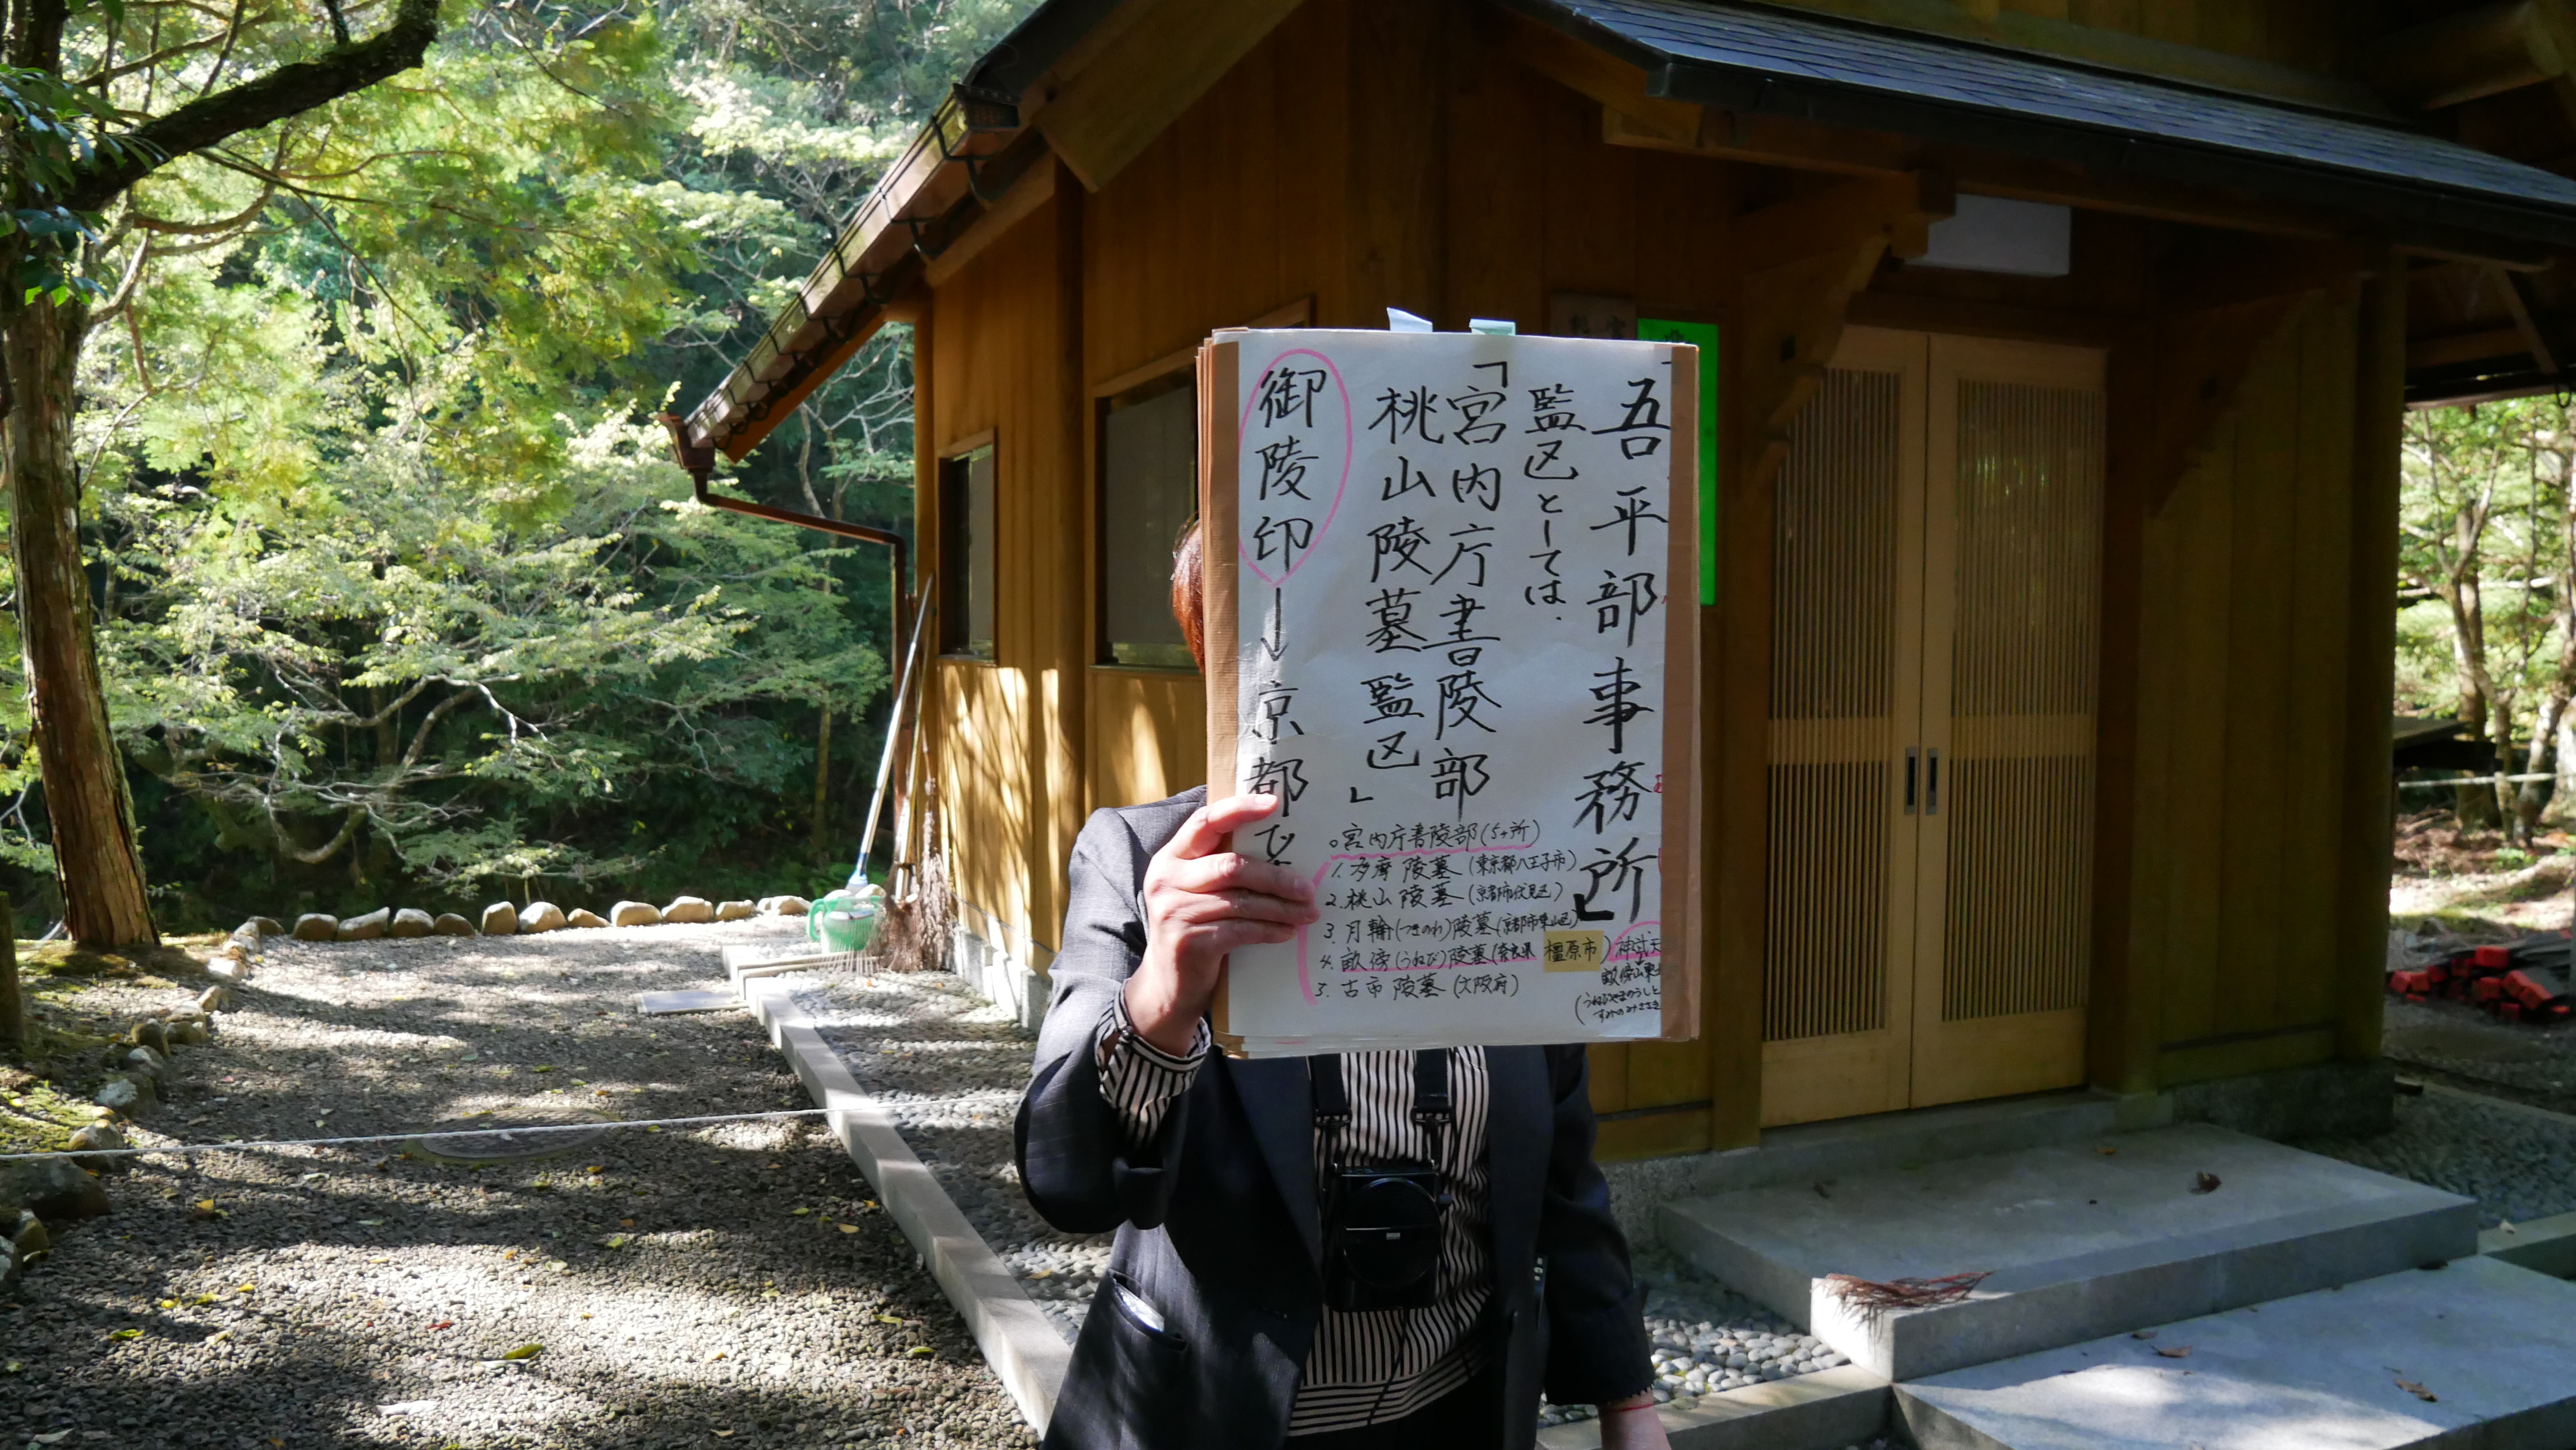 吾平部事務所」
監区としては、
「宮内庁書陵部
桃山陵墓監区」
御陵印→京都で
○宮内庁書陵部(5ヶ所)
1.多摩陵墓(東京都八王子市)
2.桃山陵墓(京都市伏見区)
3.月輪(つきのわ)陵墓(京都市東山区)
4.畝傍(うねび)陵墓(奈良県橿原市)
5.古市陵墓(大阪府)
畝傍山東
(うねびやまのうしと
すみのみささぎ